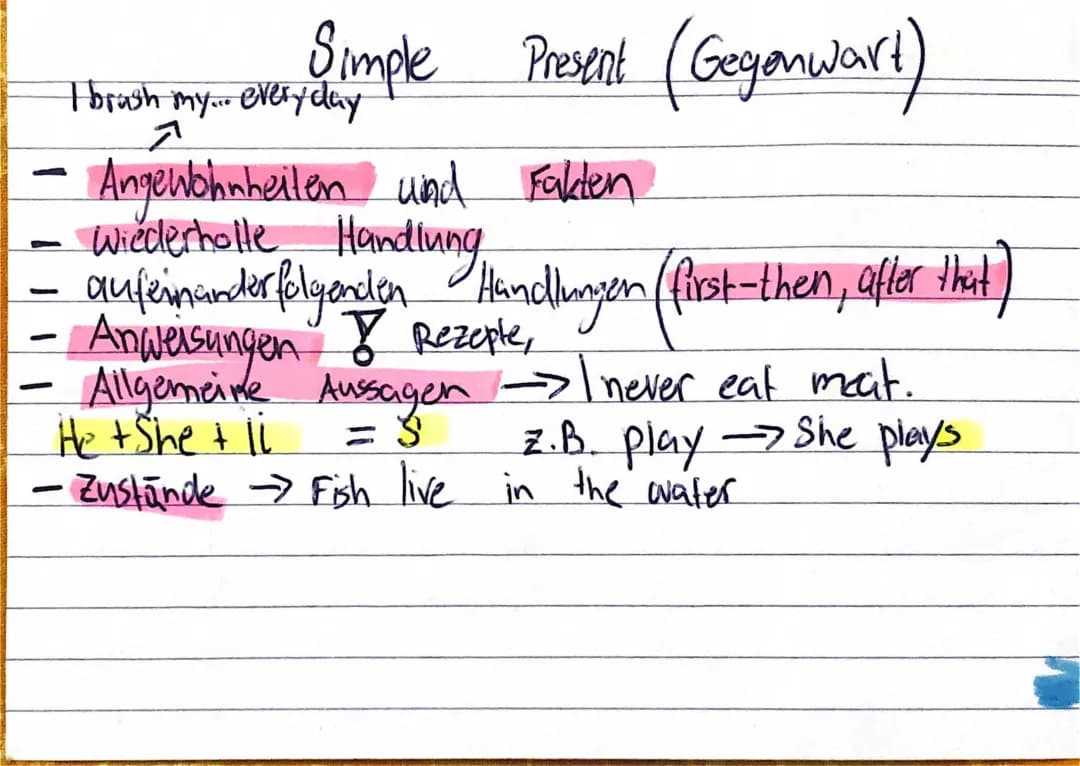 Simple Present (Gegenwart)
I brush my... everyday
- Angewohnheiten und Fakten
- wiederholte Handlung
- aufeinanderfolgenden Handlungen (first-then, after that)
- Anweisungen ! Rezepte,
- Allgemeine Aussagen → I never eat meat.
He + She + It = S z.B. play → She plays
- Zustände → Fish live in the water